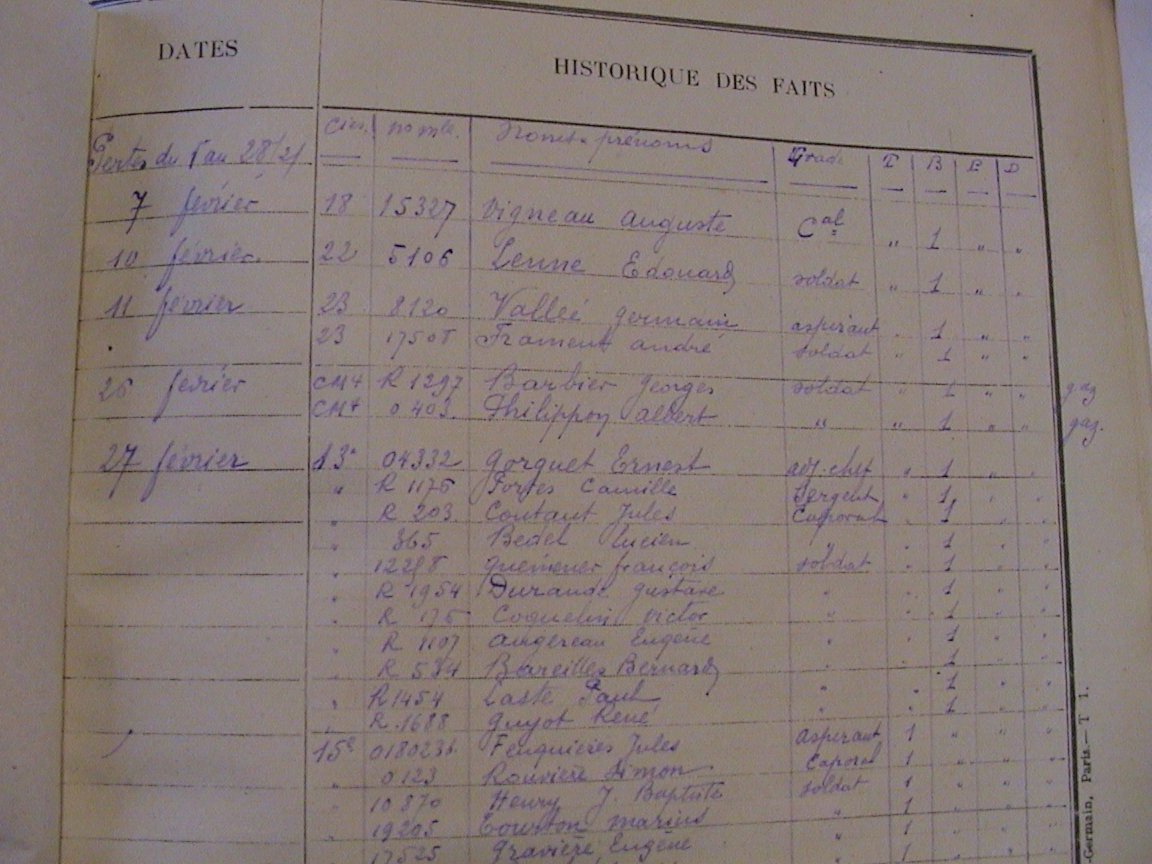 DATES HISTORIQUE DES FAITS
Pertes du au 28 Cies. nomle. Noms & prénoms Grade T B E D
7 février 18 15327 Vigneau Auguste Cal " 1 " "
10 février. 22 5106 Lenne Edouard soldat " 1 " "
11 février 23 8120 Vallée germain aspirant " 1 " "
23 17508 Froment andré soldat " 1 " "
26 février CM4 R 1297 Barbier georges soldat " 1 " " gaz
CM4 0403. Philippon albert " " 1 " " gaz.
27 février 13e 04332 gorguet Ernest adj. chef " 1 " "
" R 1175 Portes Camille Sergent " 1 " "
" R 203. Coutant Jules Caporal " 1 " "
" 365 Bedel Lucien " " 1 " "
" guemener françois soldat " 1 " "
" R 1954 Durande gustave " " 1 " "
" R 175 Coquelin victor " " 1 " "
" R 1107 augereau Eugène " " 1 " "
" R 534 Bareilles Bernard " " 1 " "
" R 1454 Laste Paul " " 1 " "
" R. 1688 guyot René " " 1 " "
15e Feuquières Jules aspirant 1 " " "
" 0123 Rouvière Simon Caporal 1 " " "
" 10870 Henry J. Baptiste soldat 1 " " "
" 19205 Tourton marius " 1 " " "
17525 gravière Eugène " 1 " " "
Germain, Paris.— T 1.